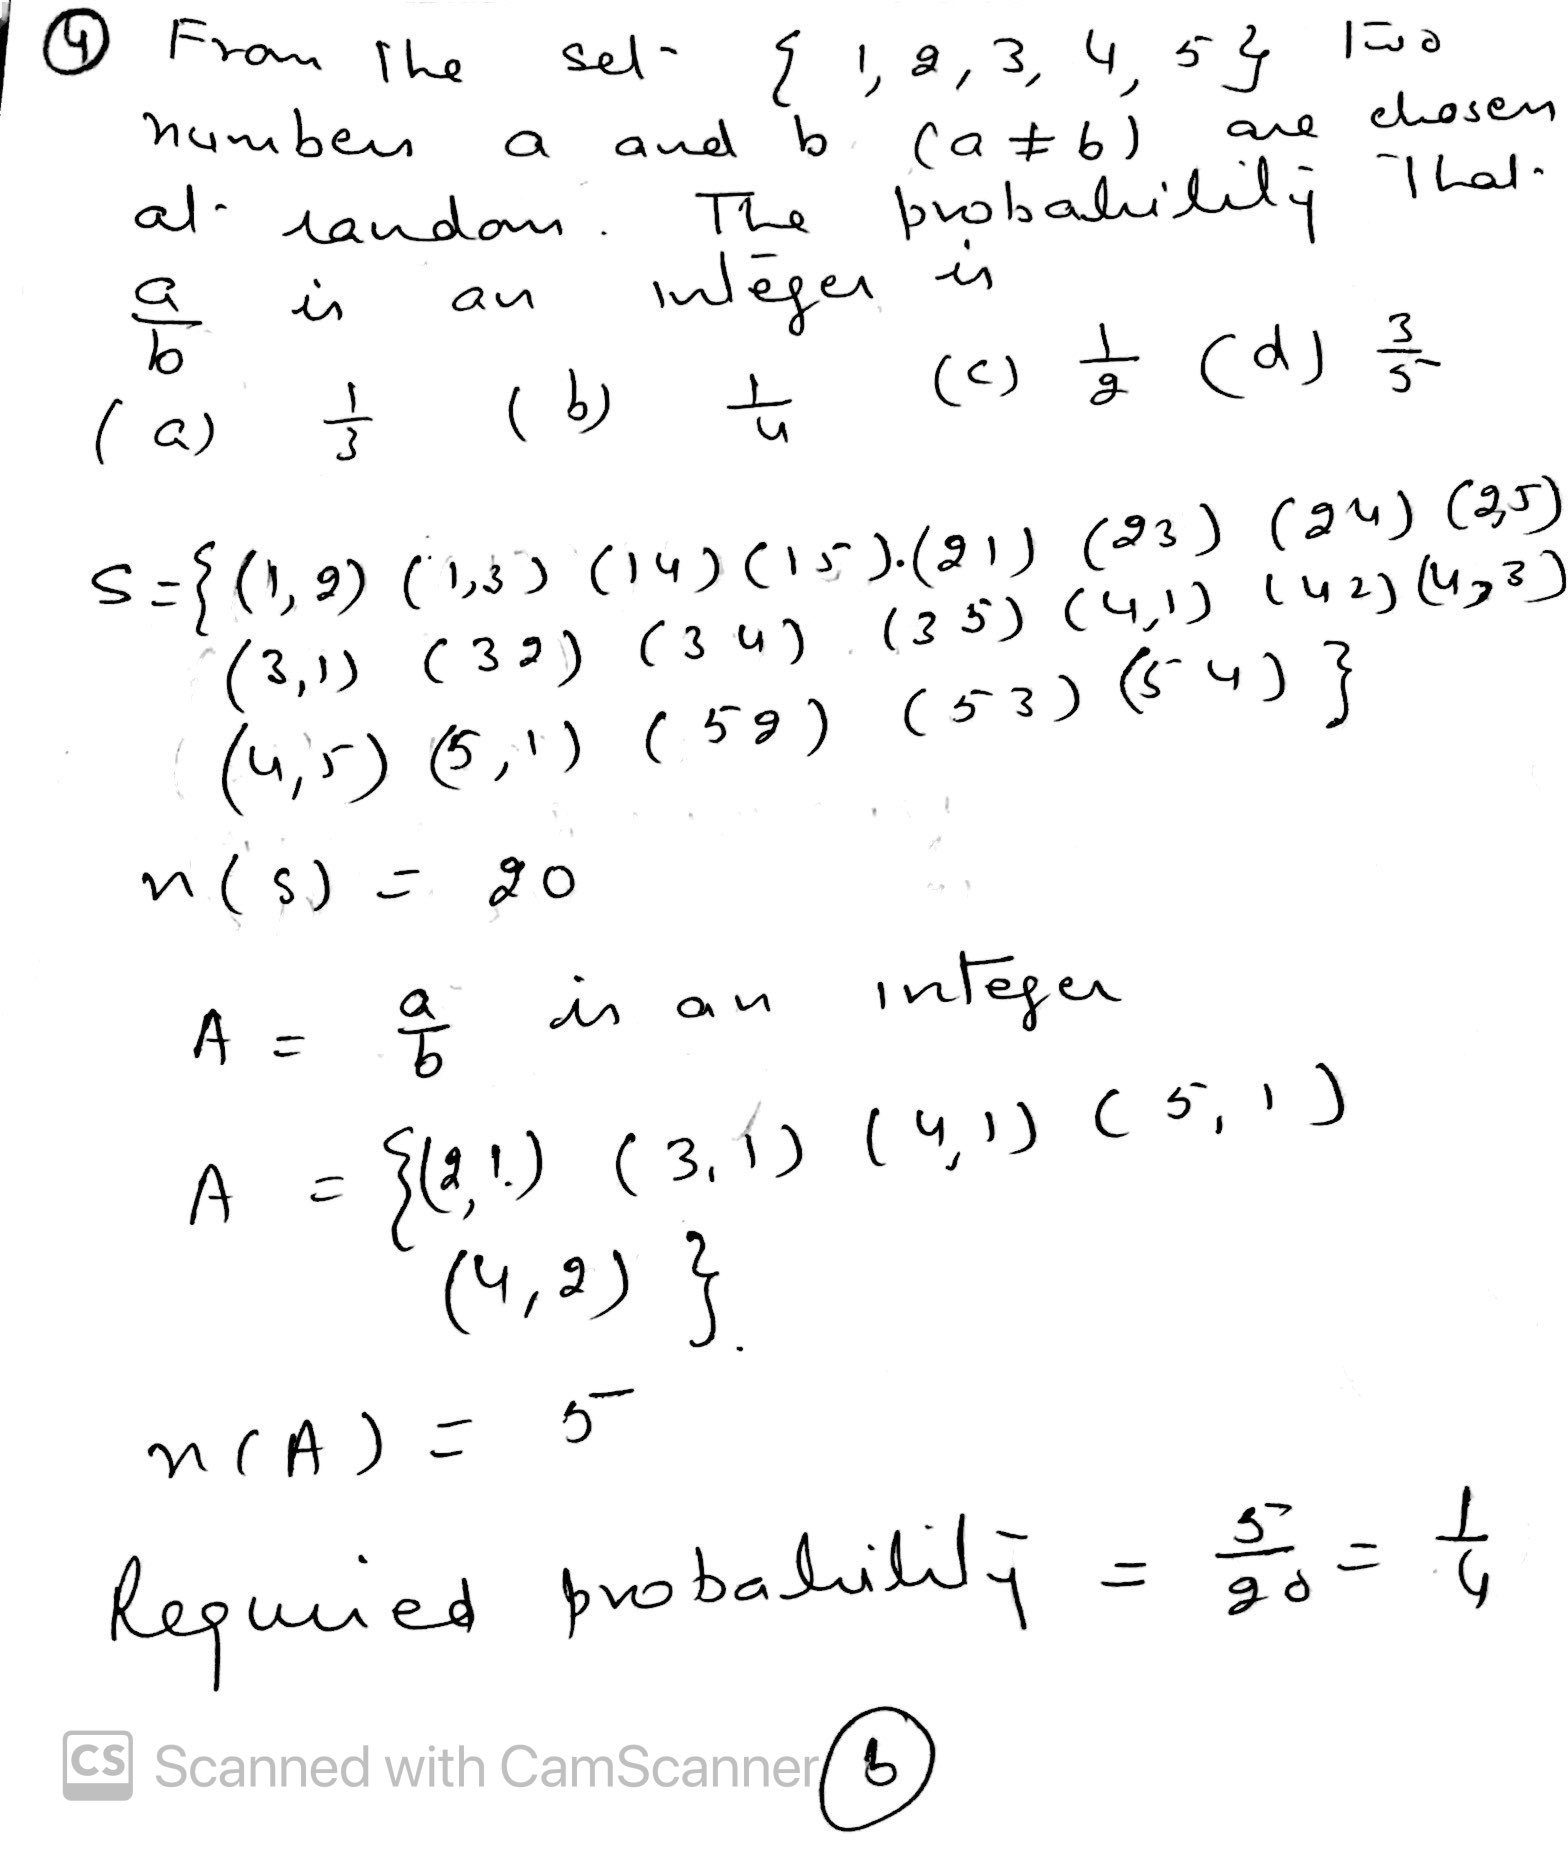 ④ From the set { 1, 2, 3, 4, 5 } Two
numbers a and b (a ≠ b) are chosen
at random. The probability That
a/b is an integer is
(a) 1/3 (b) 1/4 (c) 1/2 (d) 3/5
S = { (1, 2) (1,3) (14) (15) (21) (23) (24) (2,5)
(3,1) (32) (34) (35) (4,1) (42) (4,3)
(4,5) (5,1) (52) (53) (54) }
n(s) = 20
A = a/b is an integer
A = {(2,1) (3,1) (4,1) (5,1)
(4,2) }.
n(A) = 5
Required probability = 5/20 = 1/4
CS Scanned with CamScanner b